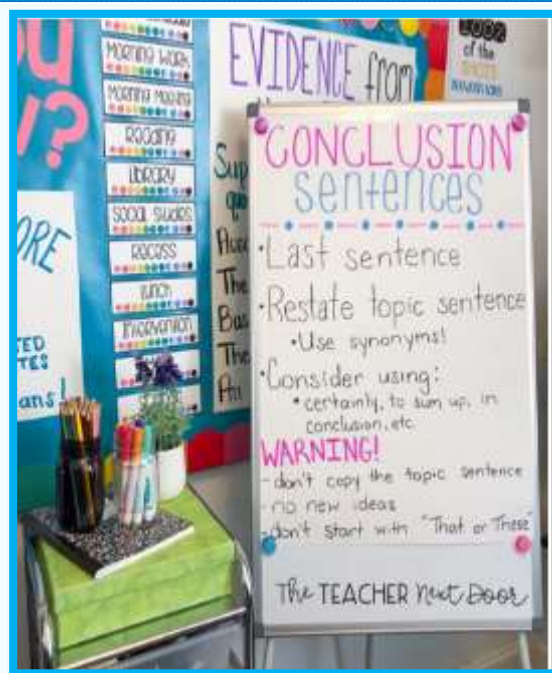 EVIDENCE from
of the
MORNING WORK
MORNING MEETING
READING
LIBRARY
SOCIAL STUDIES
RECESS
LUNCH
Intervention
CONCLUSION
sentences
•Last sentence
•Restate topic sentence
•Use synonyms!
•Consider using:
•certainly, to sum up, in
conclusion, etc.
WARNING!
-don't copy the topic sentence
-no new ideas
-don't start with "That or These"
The TEACHER Next Door